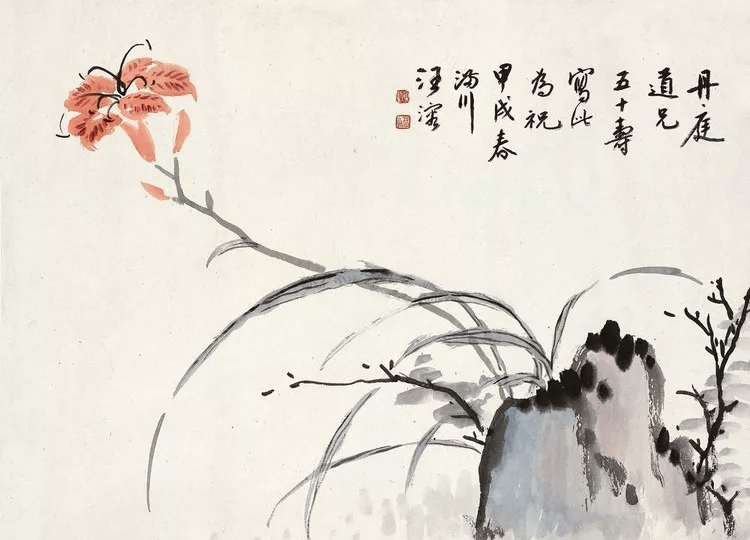 丹庭
道兄
五十壽
寫此
為祝
甲戌春
汪溶